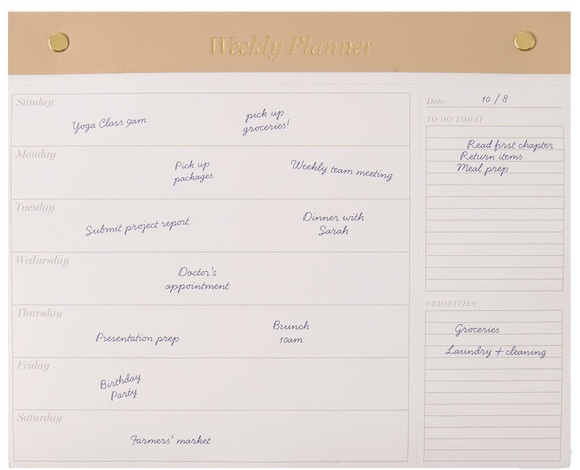 Weekly Planner
Sunday
Yoga Class 9am
pick up
groceries!
Monday
Pick up
packages
Weekly team meeting
Tuesday
Submit project report
Dinner with
Sarah
Wednesday
Doctor's
appointment
Thursday
Presentation prep
Brunch
10am
Friday
Birthday
Party
Saturday
Farmers' market
Date: 10 / 8
TO DO TODAY
Read first chapter
Return items
Meal prep
PRIORITIES
Groceries
Laundry + cleaning